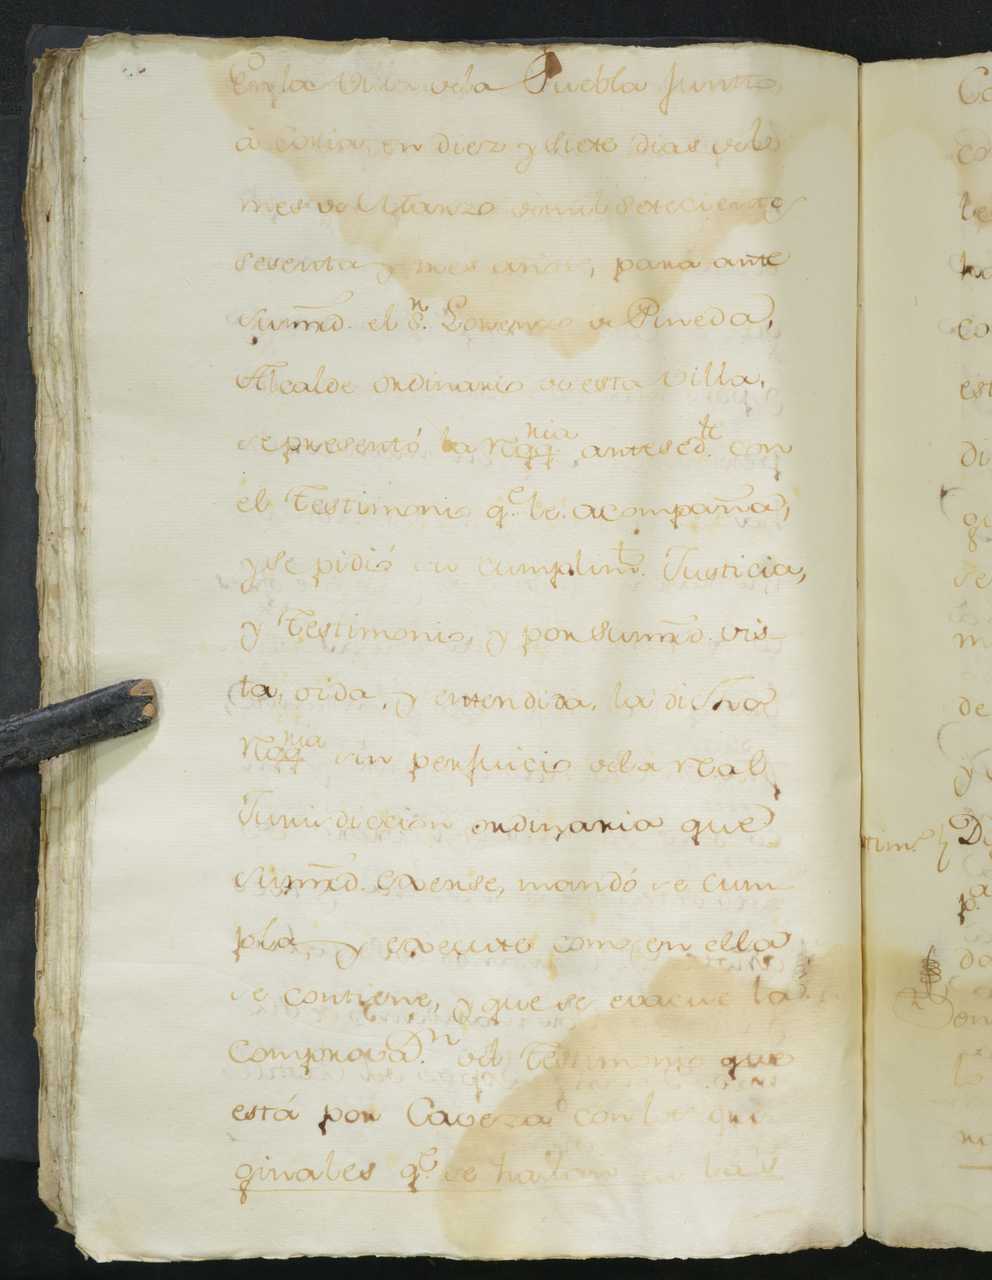 En la Villa dela Puebla Juntto
à Coria, en diez y siete dias del
mes de Marzo de mil setecientos
sesenta y tres años, para ante
sumrd. el Sn. Lorenzo de Pineda,
Alcalde ordinario de esta Villa,
se presentó la Reqqnia antesedte. con
el Testimonio qe. le acompaña,
y se pidió su cumplimto. Justicia,
y Testimonio, y por sumrd. vis-
ta, oida, y entendida, la dicha
Reqqnia sin perjuicio dela real
Jurisdiccion ordinaria que
sumrd. exerse, mandó se cum
pla, y execute como en ella
se contiene, y que se evacue la
Comprovazn. del Testimonio que
está por Caveza con los ori
ginales qe. se hallan en las
Co
co
le
co
est
di
se
de
Di